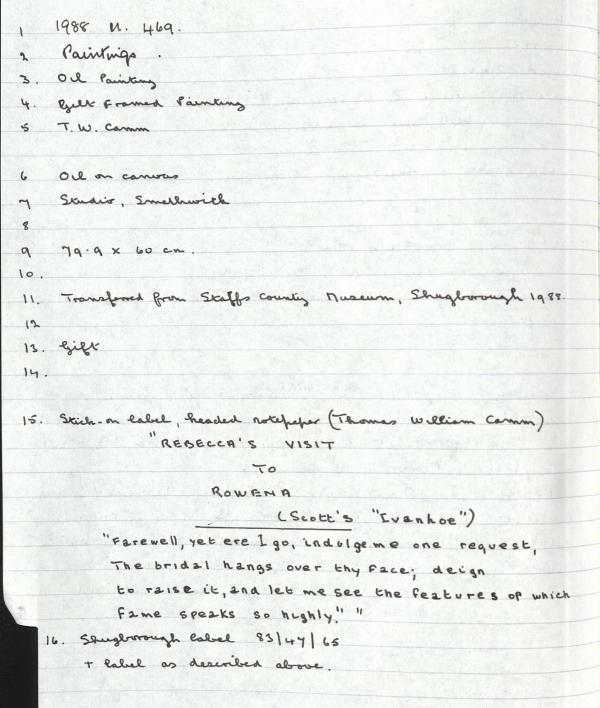 1 1988 M. 469.
2 Paintings.
3. Oil Painting
4. Gilt Framed Painting
5 T.W. Camm
6 Oil on canvas
7 Studio, Smethwick
8
9 79.9 x 60 cm.
10.
11. Transferred from Staffs County Museum, Shugborough 1988.
12
13. Gift
14.
15. Stick-on label, headed notepaper (Thomas William Camm)
"REBECCA'S VISIT
TO
ROWENA
(Scott's "Ivanhoe")
"Farewell, yet ere I go, indulge me one request,
The bridal hangs over thy face; deign
to raise it, and let me see the features of which
fame speaks so highly." "
16. Shugborough label 83/47/65
+ label as described above.